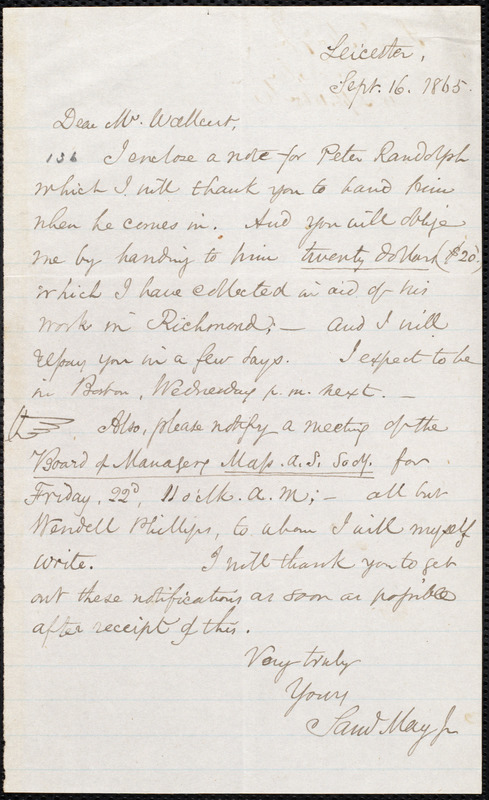 Leicester,
Sept. 16. 1865.
Dear Mr. Wallcut,
136 I enclose a note for Peter Randolph
which I will thank you to hand him
when he comes in. And you will oblige
me by handing to him twenty dollars ($20.)
which I have collected in aid of his
work in Richmond; — and I will
repay you in a few days. I expect to be
in Boston, Wednesday p.m. next. —
Also, please notify a meeting of the
Board of Managers Mass. A. S. Socy. for
Friday, 22d, 11 o'clk. a.m; — all but
Wendell Phillips, to whom I will myself
write. I will thank you to get
out these notifications as soon as possible
after receipt of this.
Very truly
Yours
Saml May Jr